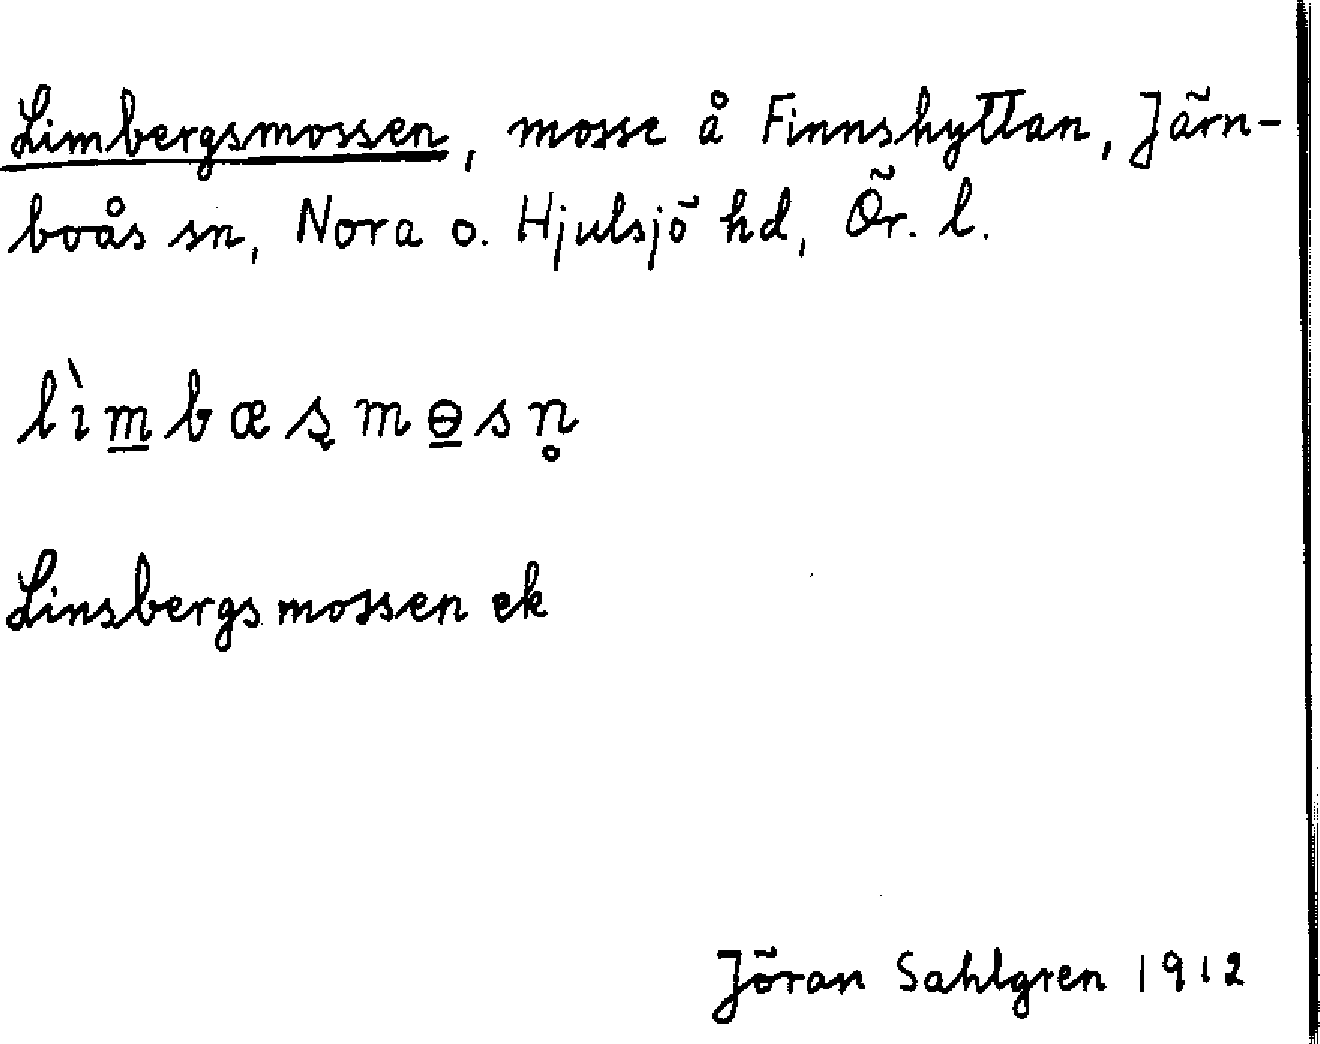 Limbergsmossen, mosse å Finnshyttan, Järn-
boås sn, Nora o. Hjulsjö hd, Ör. l.
lìm̲bæʂmɵ̲sn̥
Linsbergsmossen ek
Jöran Sahlgren 1912